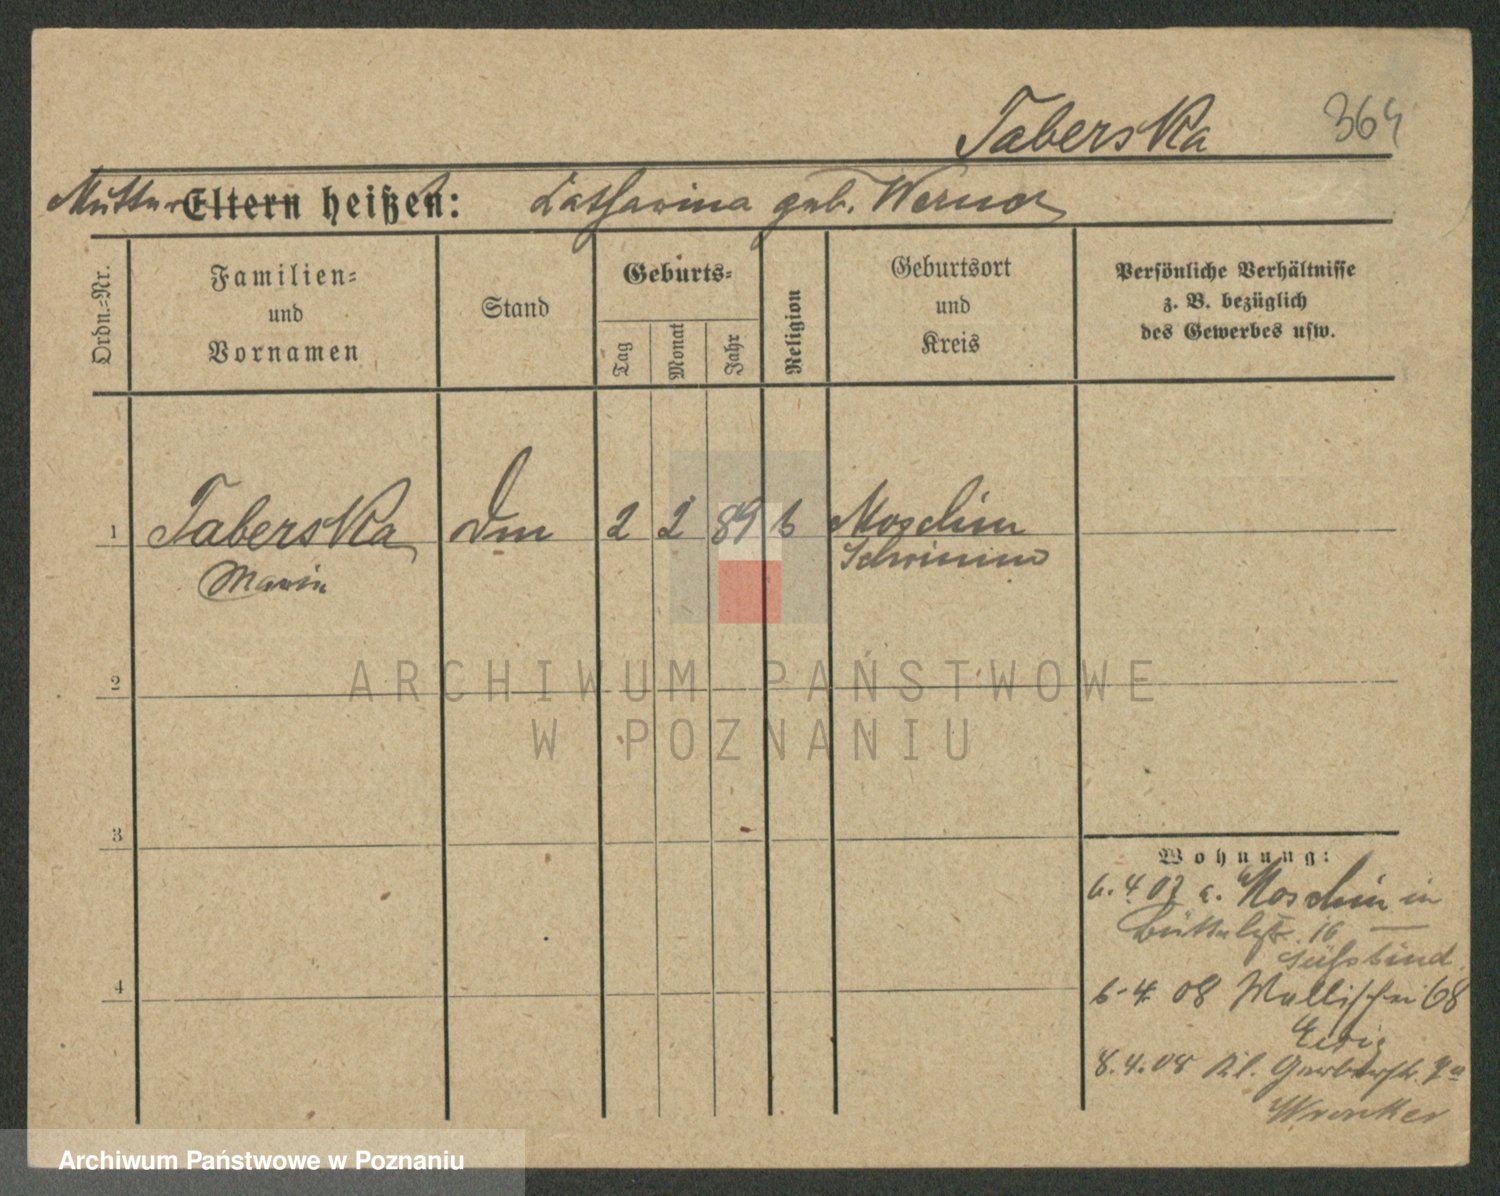 Taberska 364
Mutter Eltern heißen: Katharina geb. Werner
Ordn.=Nr.
Familien=
und
Vornamen
Stand
Geburts=
Tag
Monat
Jahr
Religion
Geburtsort
und
Kreis
Persönliche Verhältnisse
z. B. bezüglich
des Gewerbes usw.
1 Taberska Dm 2 2 89 k Moschin
Maria Schrimm
2
3
4
Wohnung:
6.4.07 a. Moschin in
16
6.4.08 Wallischei 68
8.4.08 Kl. Gerberstr. 7a
Wronker
ARCHIWUM PAŃSTWOWE
W POZNANIU
Archiwum Państwowe w Poznaniu